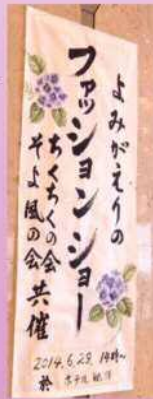 よみがえりの
ファッションショー
ちくちくの会
そよ風の会 共催
2014.6.29. 14時〜
於 ホテル